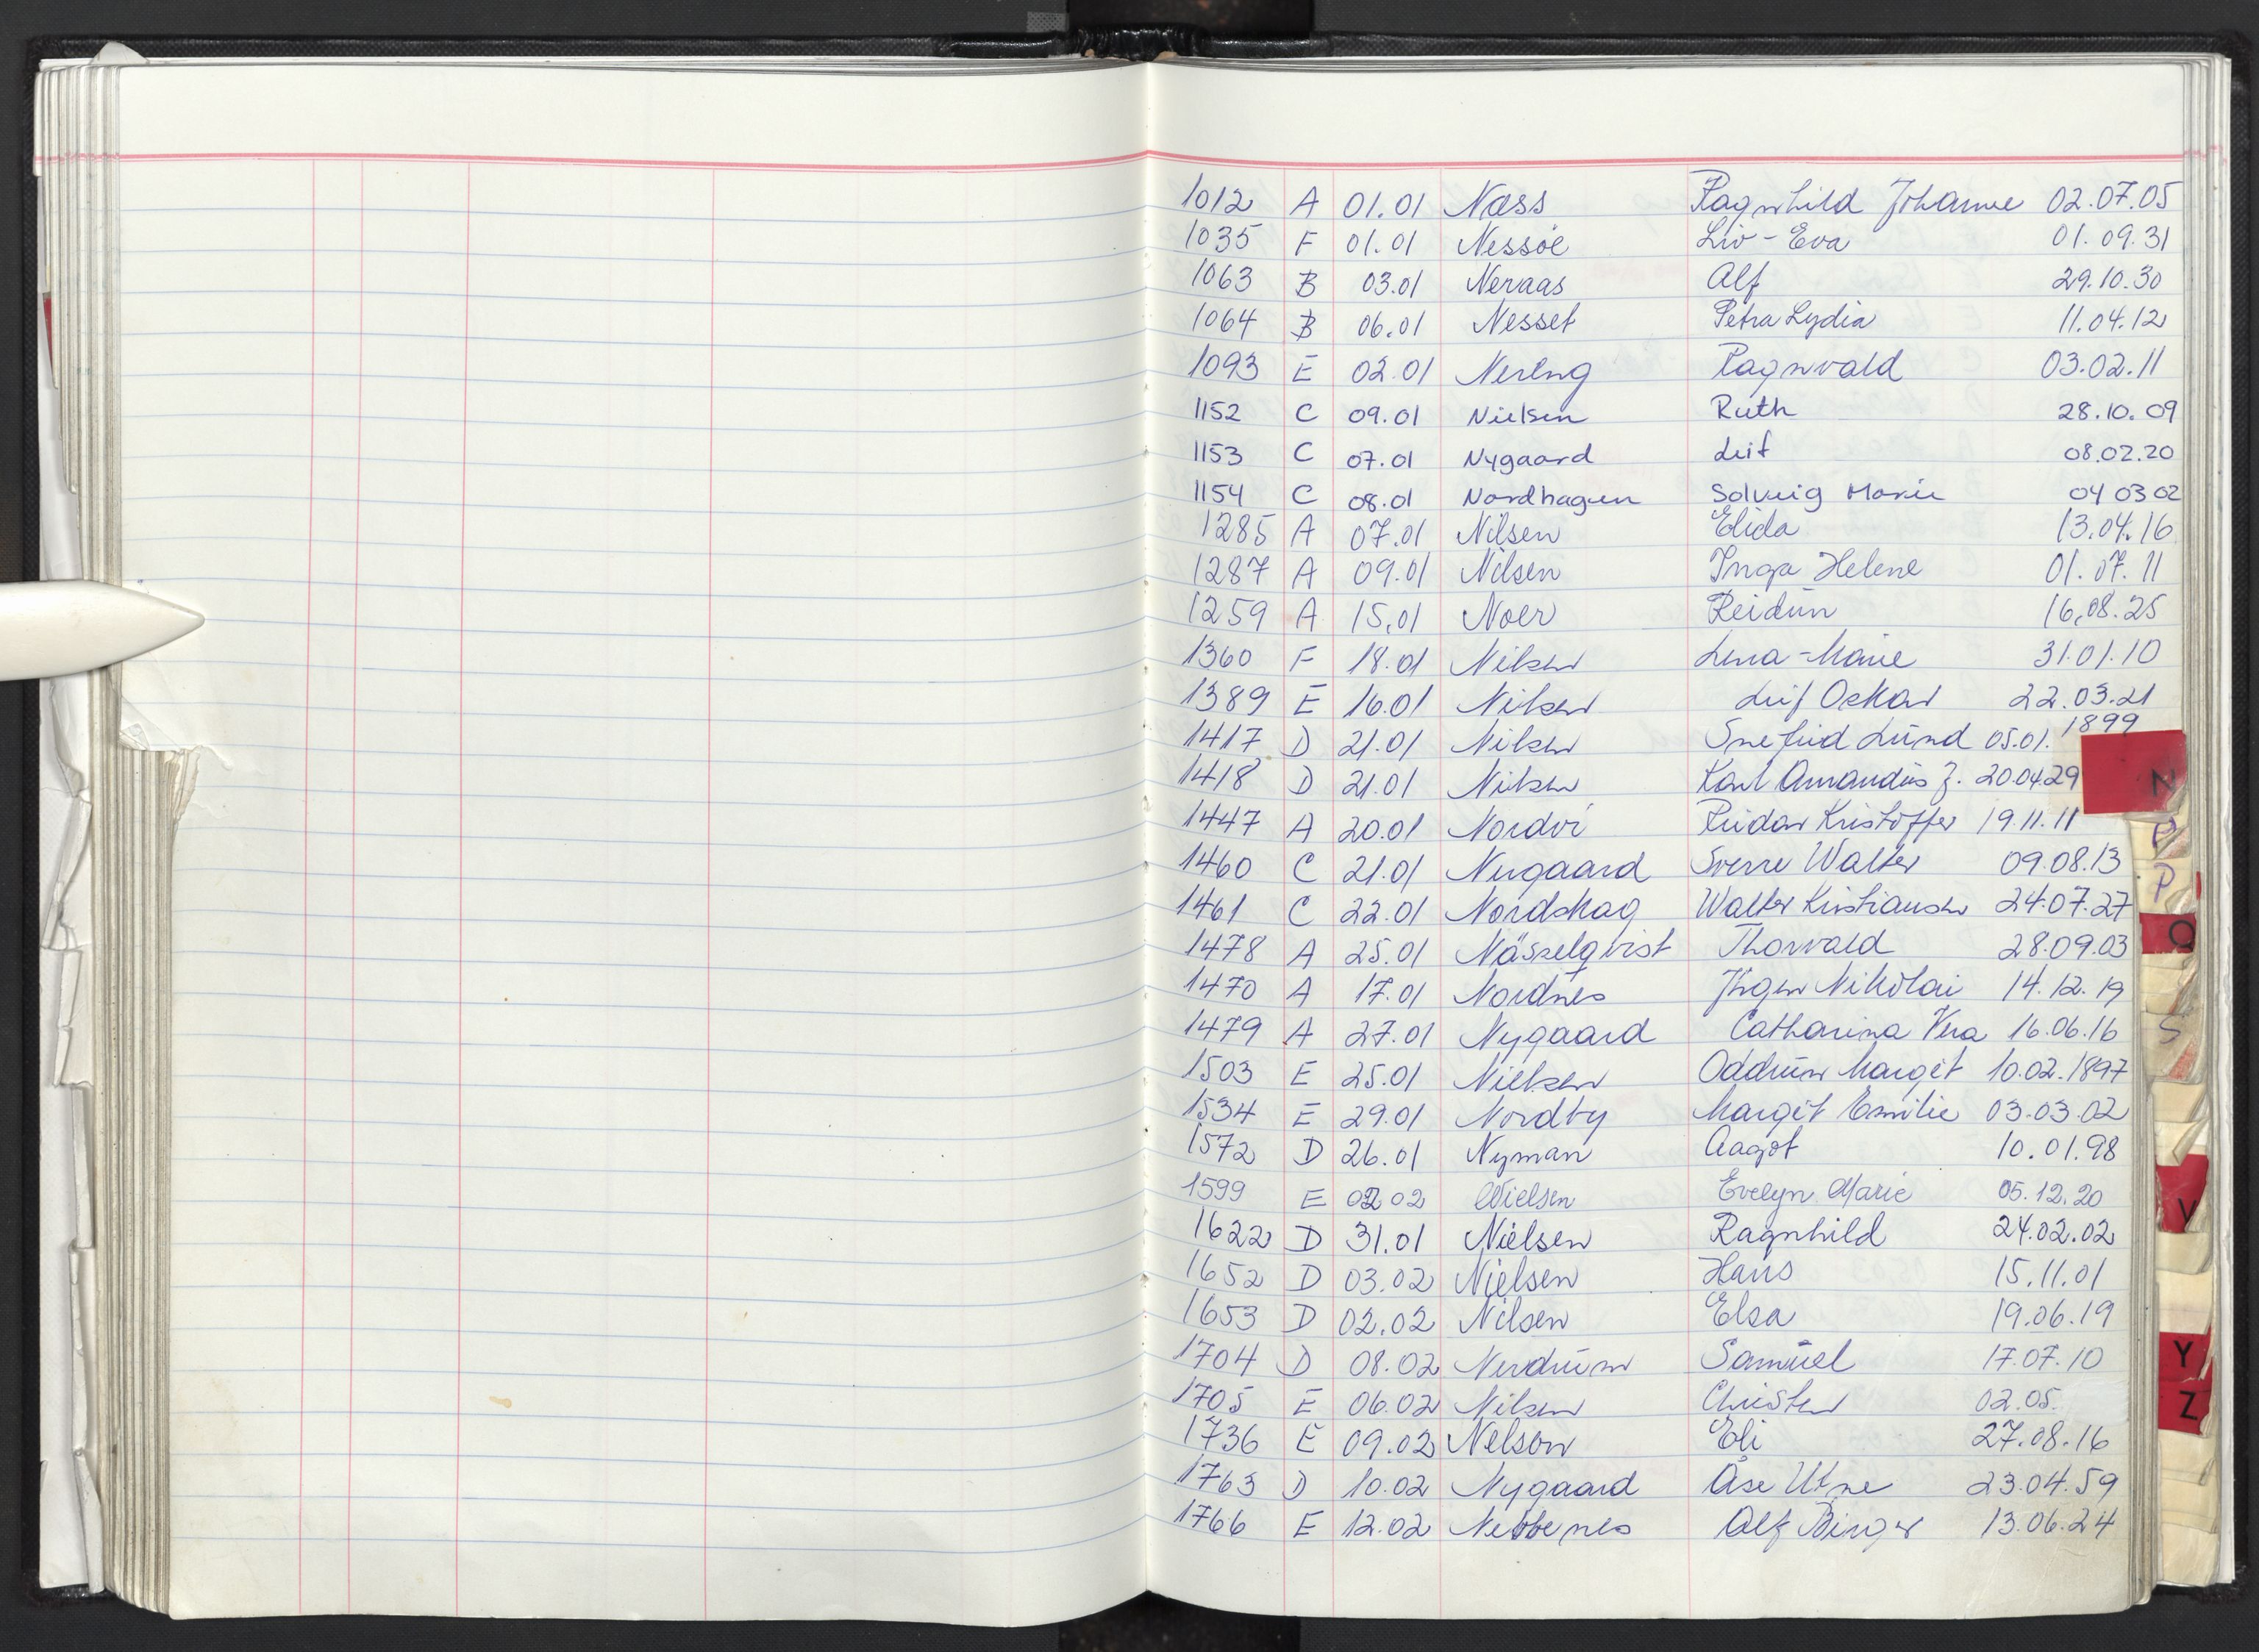 1012 A 01.01 Næss Ragnhild Johanne 02.07.05
1035 F 01.01 Nessøe Liv-Eva 01.09.31
1063 B 03.01 Neraas Alf 29.10.30
1064 B 06.01 Nesset Petra Lydia 11.04.12
1093 E 02.01 Nereng Ragnvald 03.02.11
1152 C 09.01 Nielsen Ruth 28.10.09
1153 C 07.01 Nygaard Leif 08.02.20
1154 C 08.01 Nordhagen Solveig Marie 04 03 02
1285 A 07.01 Nilsen Elida 13.04.16
1287 A 09.01 Nilsen Inga Helene 01.07.11
1259 A 15,01 Noer Reidun 16,08.25
1360 F 18.01 Nilsen Lena-Marie 31.01.10
1389 E 16.01 Nilsen Leif Oskar 22.03.21
1417 D 21.01 Nilsen Snefrid Lund 05.01.1899
1418 D 21.01 Nilsen Karl Amandus J. 20.04.29
1447 A 20.01 Nordvi Reidar Kristoffer 19.11.11
1460 C 21.01 Nergaard Sverre Walter 09.08.13
1461 C 22.01 Nordskag Walter Kristiansen 24.07.27
1478 A 25.01 Nässelqvist Thorvald 28.09.03
1470 A 17.01 Nordnes Jørgen Nikolai 14.12.19
1479 A 27.01 Nygaard Catharina Vera 16.06.16
1503 E 25.01 Nielsen Oddrun Margit 10.02.1897
1534 E 29.01 Nordby Margit Emilie 03.03.02
1572 D 26.01 Nyman Aagot 10.01.98
1599 E 02 02 Nielsen Evelyn Marie 05.12.20
1622 D 31.01 Nielsen Ragnhild 24.02.02
1652 D 03.02 Nielsen Hans 15.11.01
1653 D 02.02 Nilsen Elsa 19.06.19
1704 D 08.02 Nerdrum Samuel 17.07.10
1705 E 06.02 Nilsen Christen 02.05.
1736 E 09.02 Nelson Eli 27.08.16
1763 D 10.02 Nygaard Åse Utne 23.04.59
1766 E 12.02 Nebbenes Alf Birger 13.06.24
N
P
Q
S
V
Y
Z